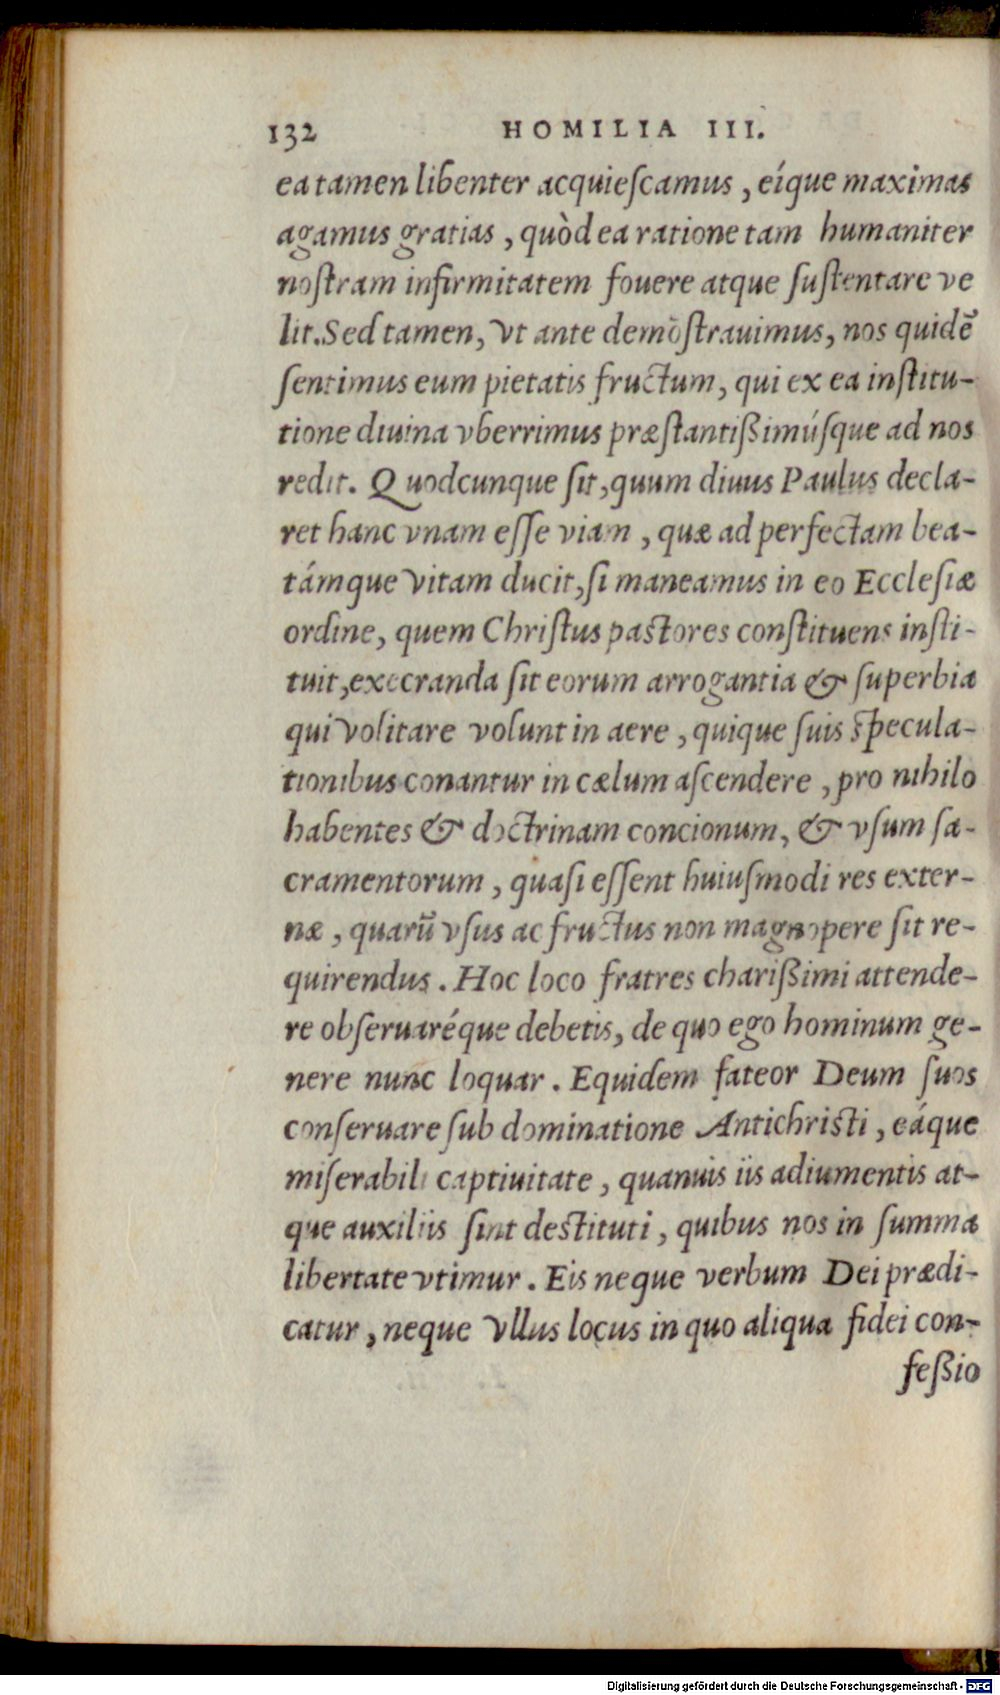 132 HOMILIA III.
ea tamen libenter acquieſcamus, eíque maximas
agamus gratias, quòd ea ratione tam humaniter
noſtram infirmitatem fouere atque ſuſtentare ve
lit. Sed tamen, vt ante demõſtrauimus, nos quidẽ
ſentimus eum pietatis fructum, qui ex ea inſtitu-
tione diuina vberrimus præſtantißimúſque ad nos
redit. Quodcunque ſit, quum diuus Paulus decla-
ret hanc vnam eſſe viam, quæ ad perfectam bea-
támque vitam ducit, ſi maneamus in eo Eccleſiæ
ordine, quem Chriſtus paſtores conſtituens inſti-
tuit, execranda ſit eorum arrogantia & ſuperbia
qui volitare volunt in aere, quique ſuis ſpecula-
tionibus conantur in cælum aſcendere, pro nihilo
habentes & doctrinam concionum, & vſum ſa-
cramentorum, quaſi eſſent huiuſmodi res exter-
næ, quarũ vſus ac fructus non magnopere ſit re-
quirendus. Hoc loco fratres charißimi attende-
re obſeruaréque debetis, de quo ego hominum ge-
nere nunc loquar. Equidem fateor Deum ſuos
conſeruare ſub dominatione Antichriſti, eáque
miſerabili captiuitate, quanuis iis adiumentis at-
que auxiliis ſint deſtituti, quibus nos in ſumma
libertate vtimur. Eis neque verbum Dei prædi-
catur, neque vllus locus in quo aliqua fidei con-
feßio
Digitalisierung gefördert durch die Deutsche Forschungsgemeinschaft - DFG